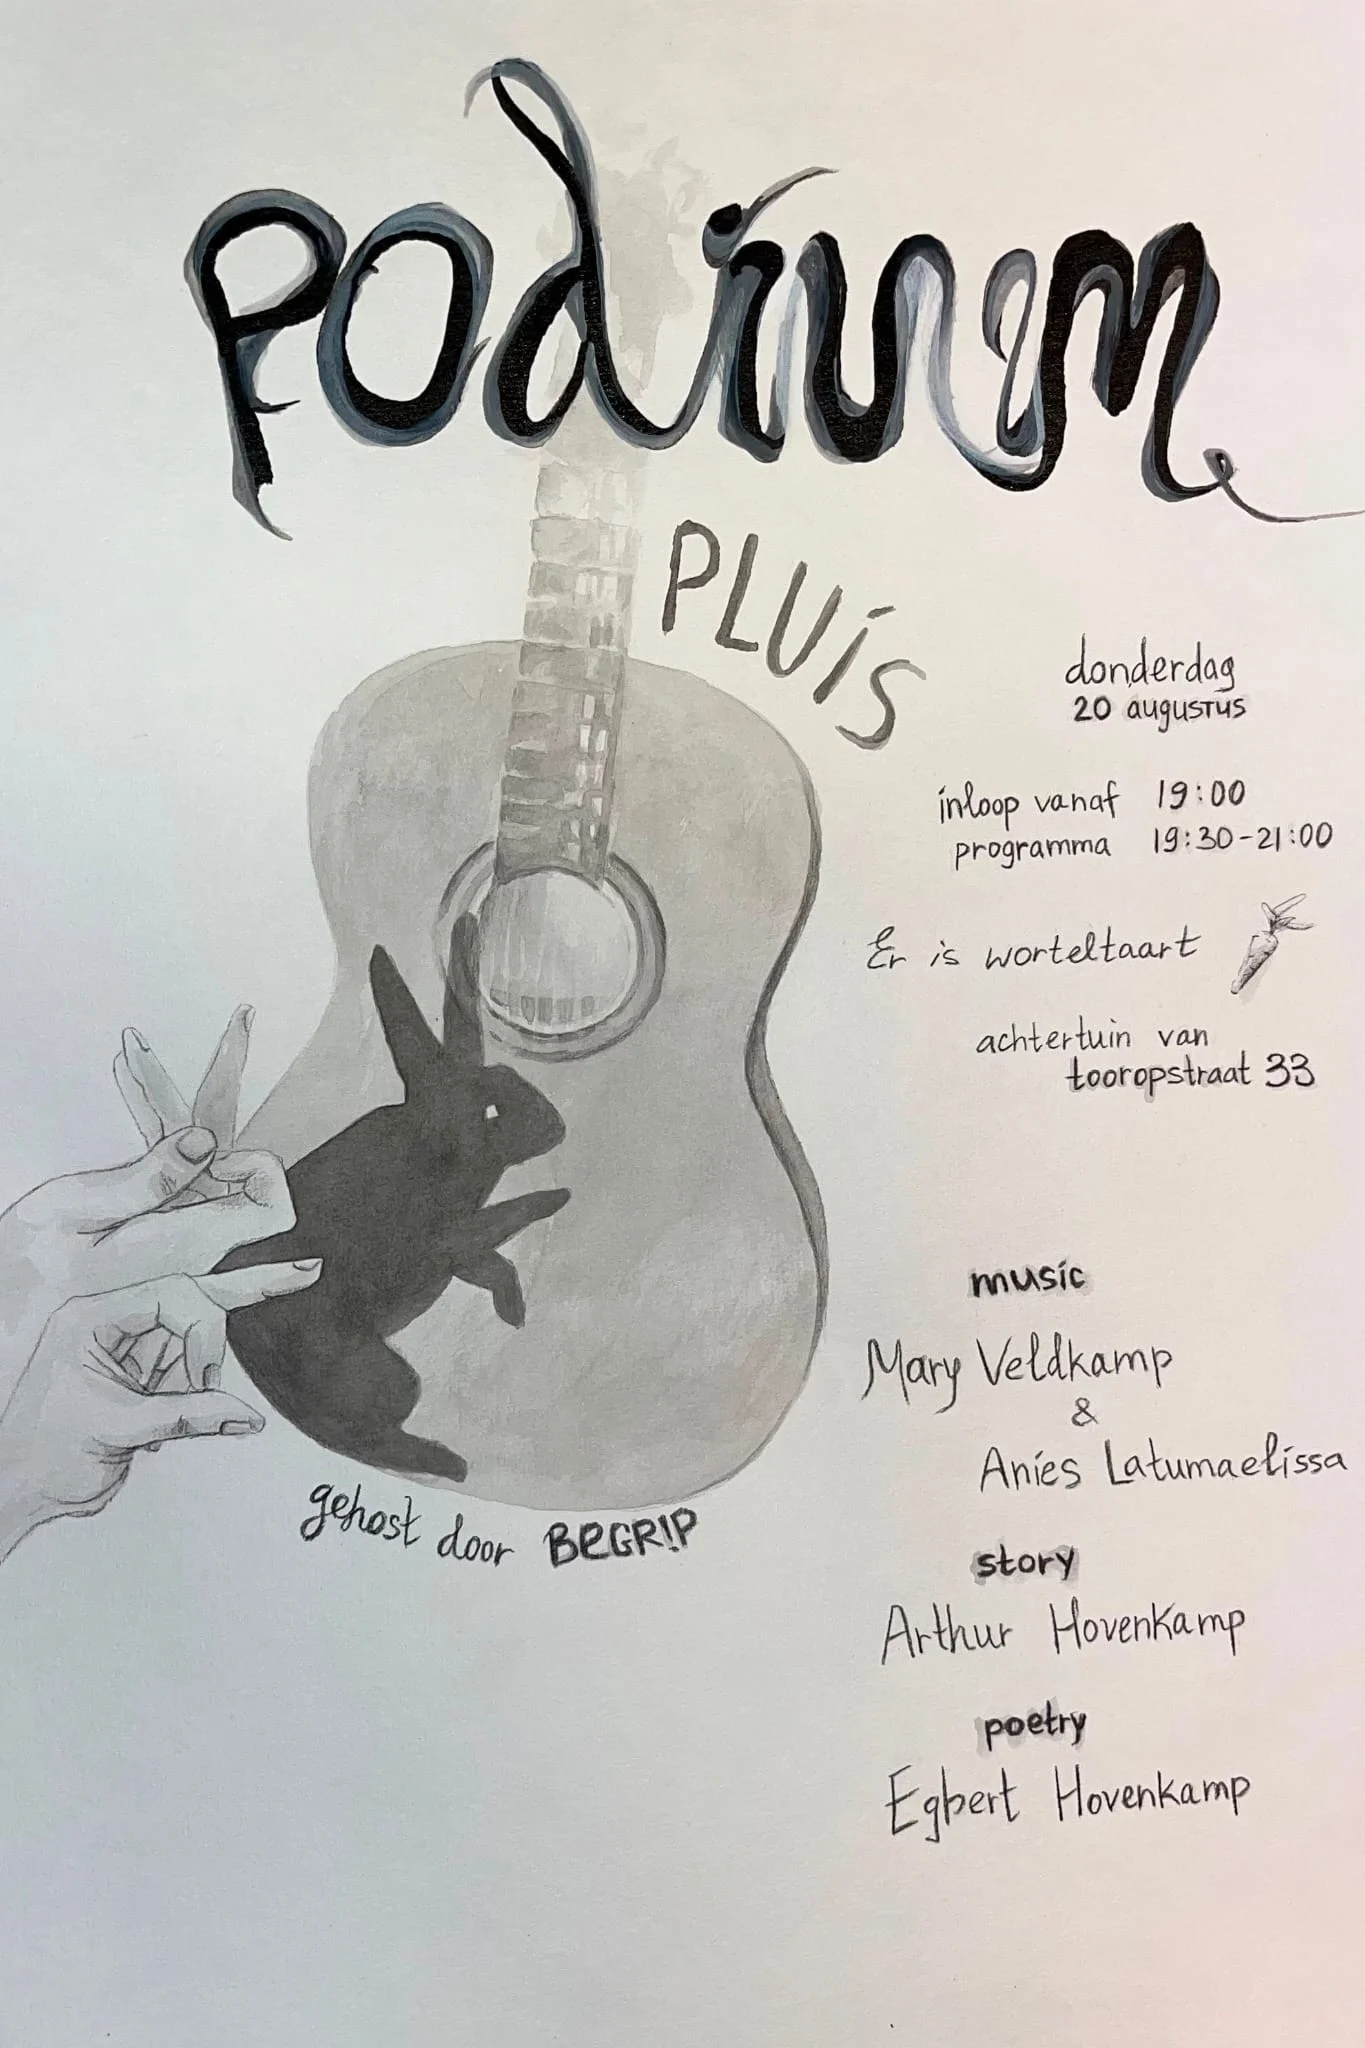 Podium
PLUIS
donderdag
20 augustus
inloop vanaf 19:00
programma 19:30-21:00
Er is worteltaart
achtertuin van
tooropstraat 33
music
Mary Veldkamp
&
Anies Latumaelissa
story
Arthur Hovenkamp
poetry
Egbert Hovenkamp
gehost door BEGR!P